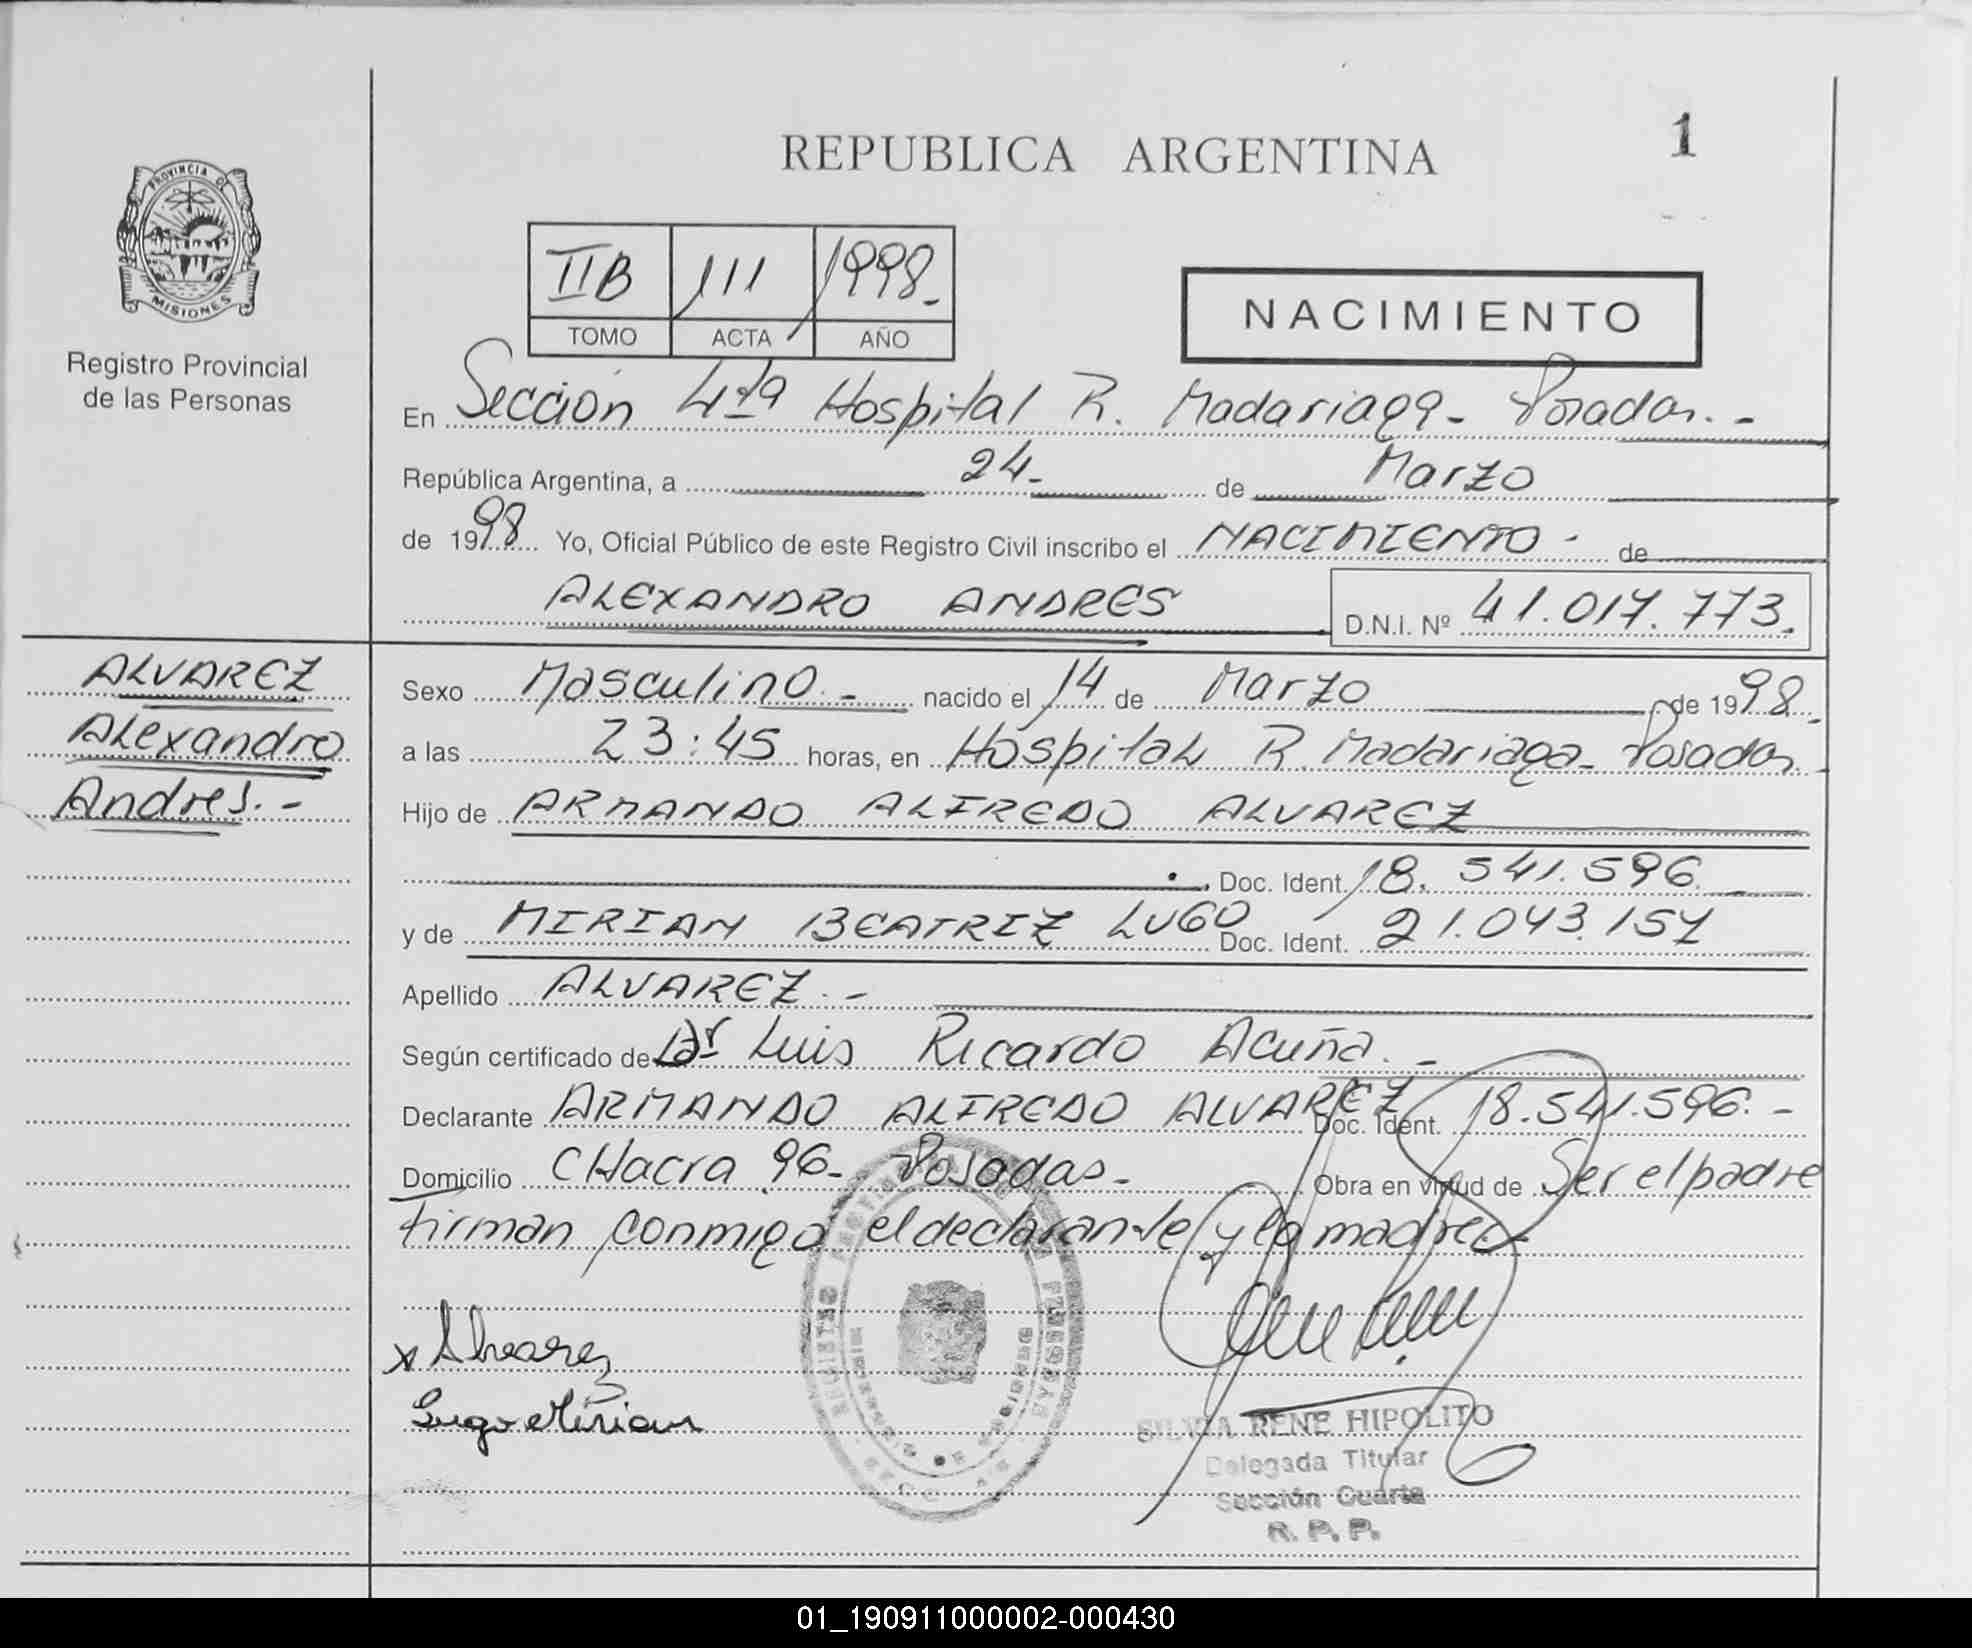 REPUBLICA ARGENTINA
1
PROVINCIA DE
MISIONES
Registro Provincial
de las Personas
IIB 111 1998.
TOMO ACTA AÑO
NACIMIENTO
En Sección 4ta Hospital R. Madariaga- Posadas.-
República Argentina, a 24- de Marzo
de 1998 Yo, Oficial Público de este Registro Civil inscribo el NACIMIENTO - de
ALEXANDRO ANDRES D.N.I. Nº 41.017.773.
ALVAREZ
Alexandro
Andres.-
Sexo Masculino.- nacido el 14 de Marzo de 1998.
a las 23:45 horas, en Hospital R. Madariaga- Posadas.
Hijo de ARMANDO ALFREDO ALVAREZ
Doc. Ident. 18.541.596
y de MIRIAN BEATRIZ LUGO Doc. Ident. 21.043.157
Apellido ALVAREZ.-
Según certificado de Dr Luis Ricardo Acuña.-
Declarante ARMANDO ALFREDO ALVAREZ Doc. Ident. 18.541.596.-
Domicilio CHacra 96- Posadas- Obra en virtud de Ser el padre
firman conmigo el declarante y la madre-
x Alvarez
Lugo Mirian
SILVIA RENE HIPOLITO
Delegada Titular
Sección Cuarta
R. P. P.
01_190911000002-000430